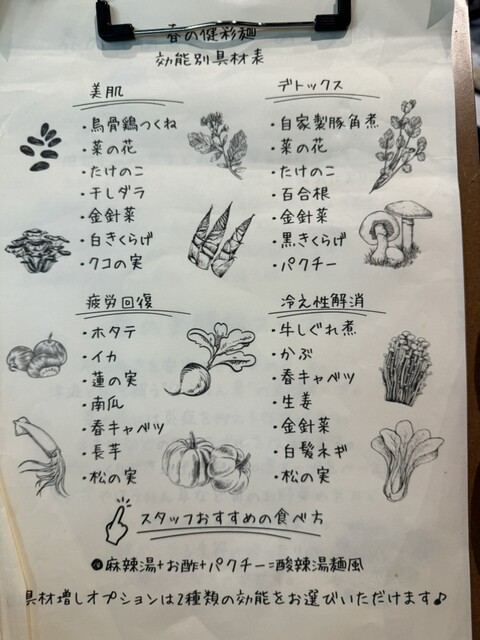 春の健彩麺
効能別具材表
美肌
・烏骨鶏つくね
・菜の花
・たけのこ
・干しダラ
・金針菜
・白きくらげ
・クコの実
デトックス
・自家製豚角煮
・菜の花
・たけのこ
・百合根
・金針菜
・黒きくらげ
・パクチー
疲労回復
・ホタテ
・イカ
・蓮の実
・南瓜
・春キャベツ
・長芋
・松の実
冷え性解消
・牛しぐれ煮
・かぶ
・春キャベツ
・生姜
・金針菜
・白髪ネギ
・松の実
スタッフおすすめの食べ方
麻辣湯+お酢+パクチー=酸辣湯麺風
具材増しオプションは2種類の効能をお選びいただけます♪